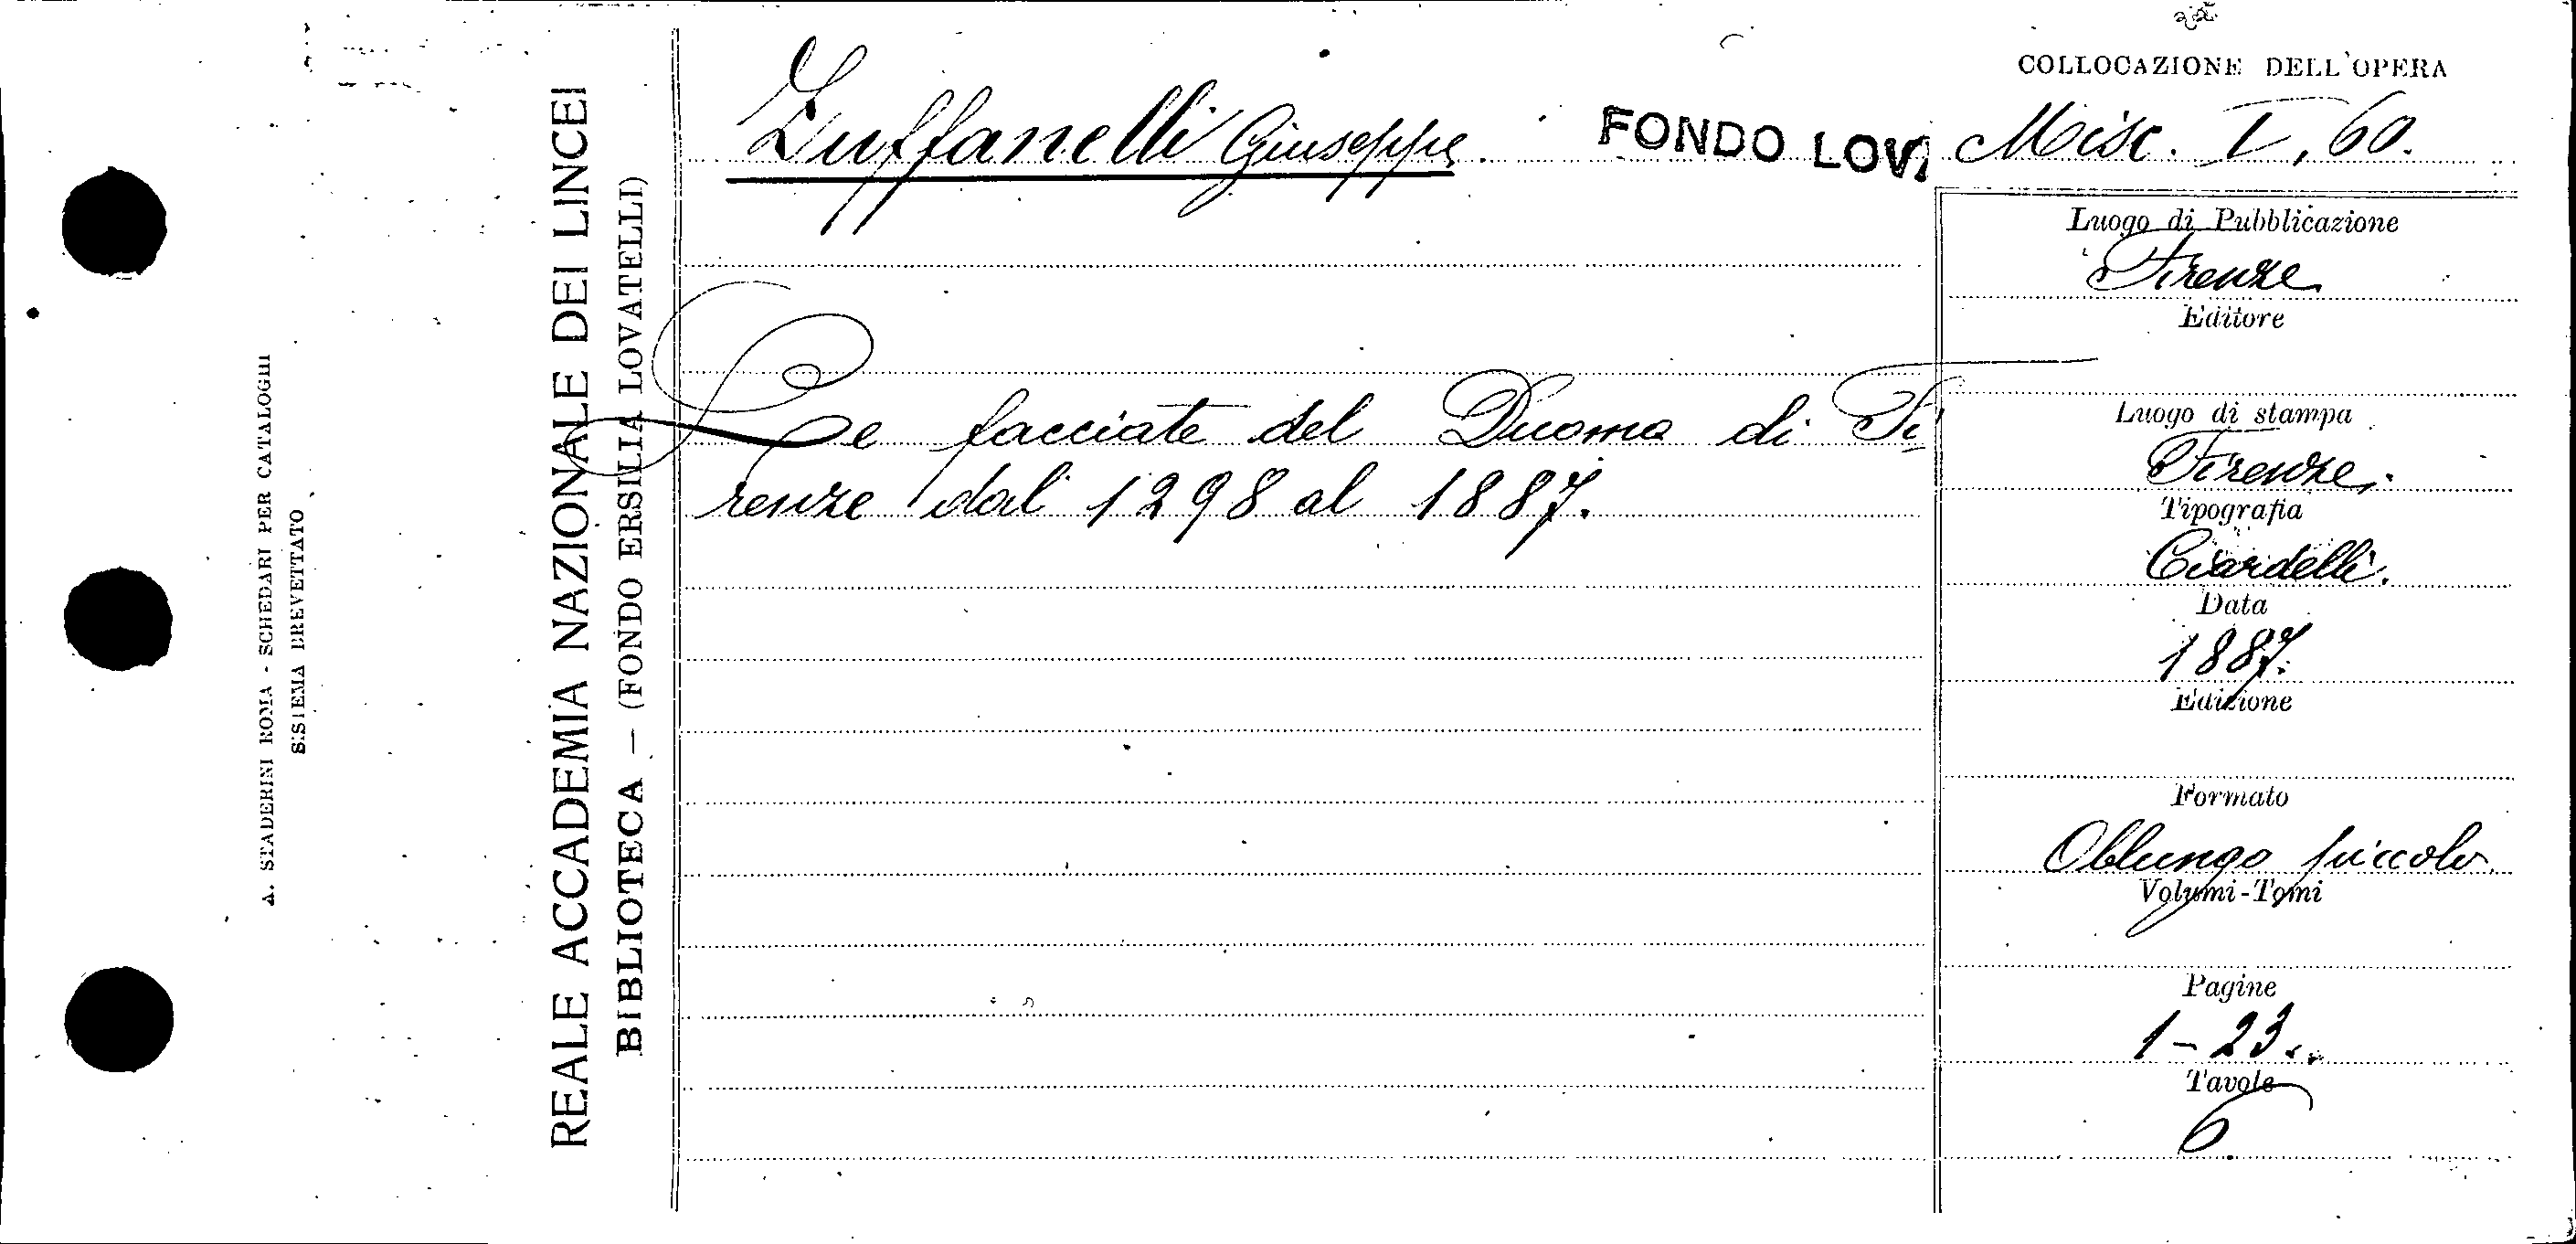 A. STADERINI ROMA - SCHEDARI PER CATALOGHI
SISTEMA BREVETTATO
REALE ACCADEMIA NAZIONALE DEI LINCEI
BIBLIOTECA — (FONDO ERSILIA LOVATELLI)
Zuffanelli Giuseppe.
FONDO LOV
COLLOCAZIONE DELL'OPERA
Misc. I, 60.
Le facciate del Duomo di Fi
renze dal 1298 al 1887.
Luogo di Pubblicazione
Firenze
Editore
Luogo di stampa
Firenze.
Tipografia
Ciardelli.
Data
1887.
Edizione
Formato
Oblungo piccolo
Volumi-Tomi
Pagine
1-23.
Tavole
6